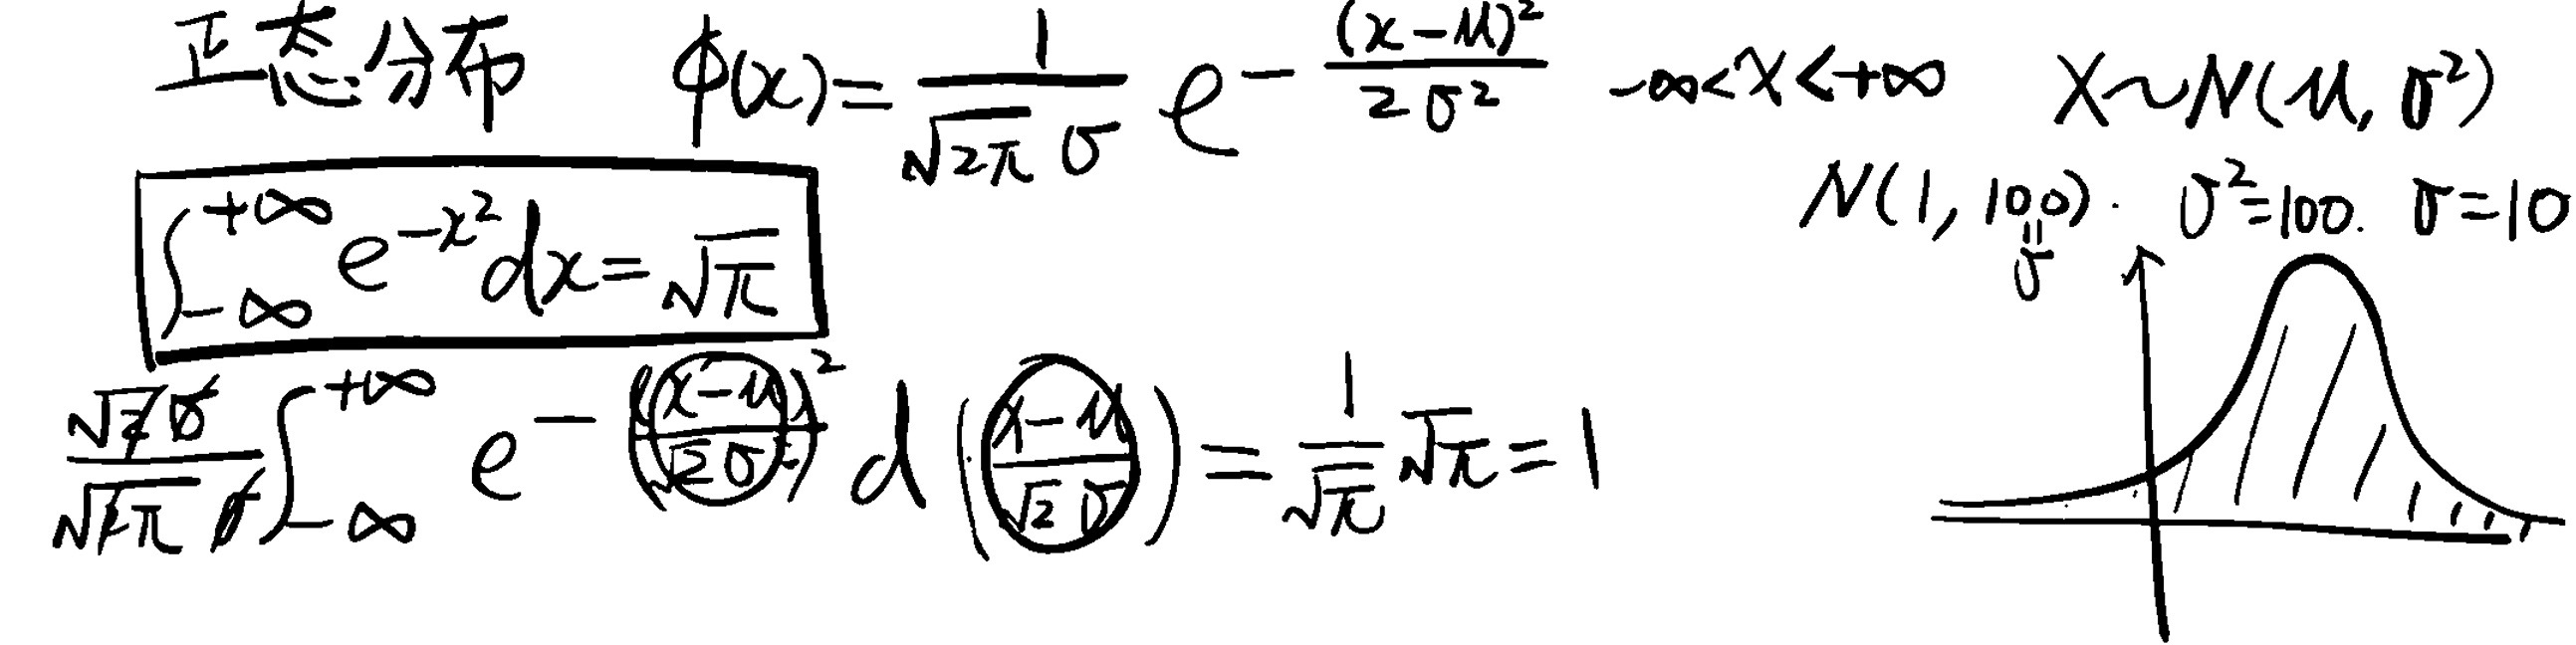 正态分布 φ(x)=\frac{1}{\sqrt{2π}σ} e^{-\frac{(x-μ)^2}{2σ^2}} -∞<x<+∞ X~N(μ, σ^2)
N(1, 100). σ^2=100. σ=10
σ
\int_{-∞}^{+∞} e^{-x^2}dx=\sqrt{π}
\frac{\sqrt{2}σ}{\sqrt{2π}σ}\int_{-∞}^{+∞} e^{-(\frac{x-μ}{\sqrt{2}σ})^2} d(\frac{x-μ}{\sqrt{2}σ})=\frac{1}{\sqrt{π}}\sqrt{π}=1